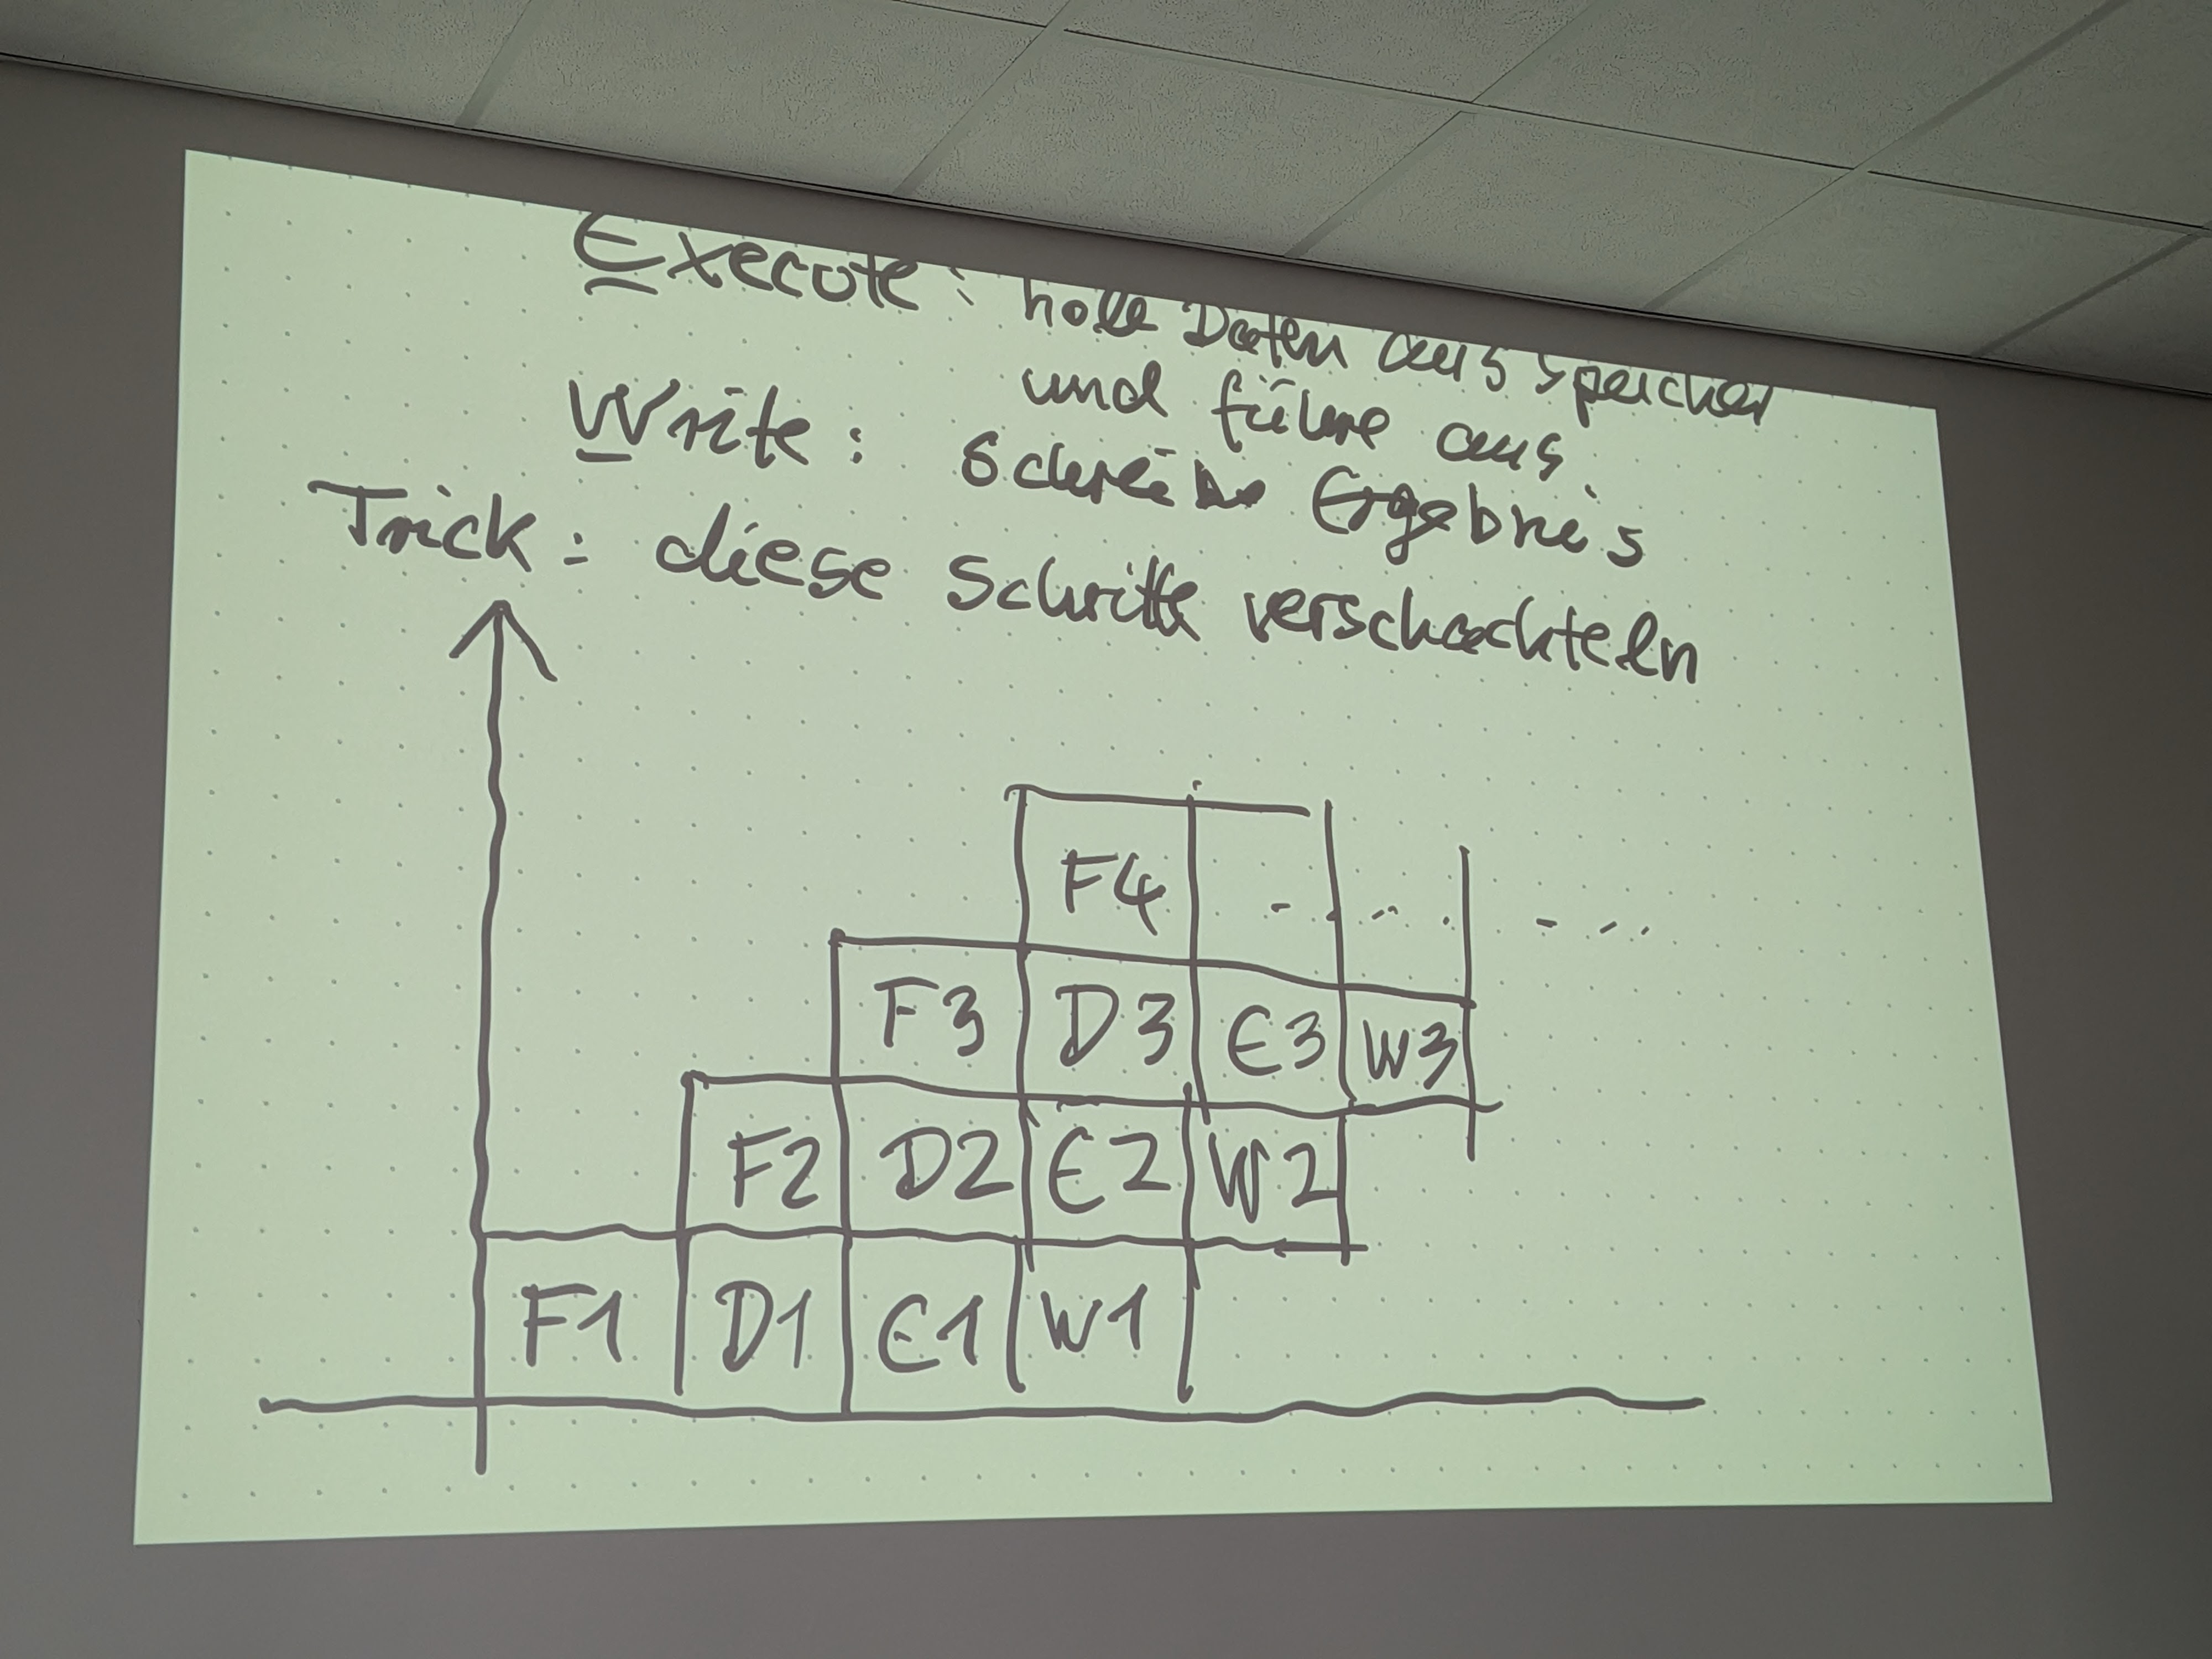 Execute: hole Daten aus Speicher
und führe aus
Write: schreibe Ergebnis
Trick: diese Schritte verschachteln
F4 - - - . - - ..
F3 D3 E3 W3
F2 D2 E2 W2
F1 D1 E1 W1